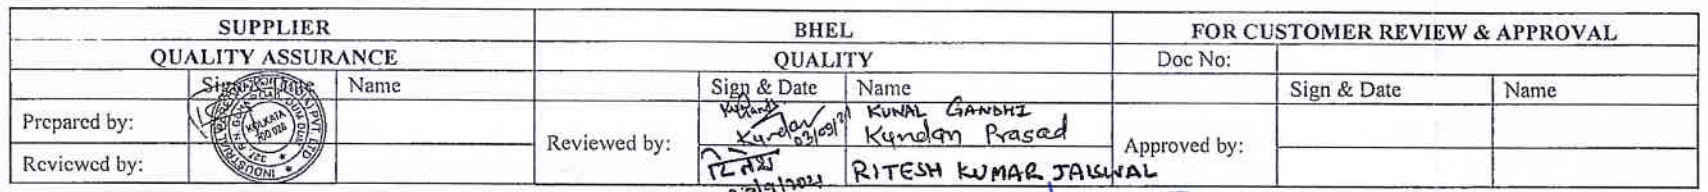 SUPPLIER BHEL FOR CUSTOMER REVIEW & APPROVAL
QUALITY ASSURANCE QUALITY Doc No:
Sign & Date Name Sign & Date Name Sign & Date Name
Prepared by: Reviewed by: Kundan 03/09/21 KUNAL GANDHI
Kundan Prasad Approved by:
Reviewed by: रितेश RITESH KUMAR JAISWAL
KOLKATA